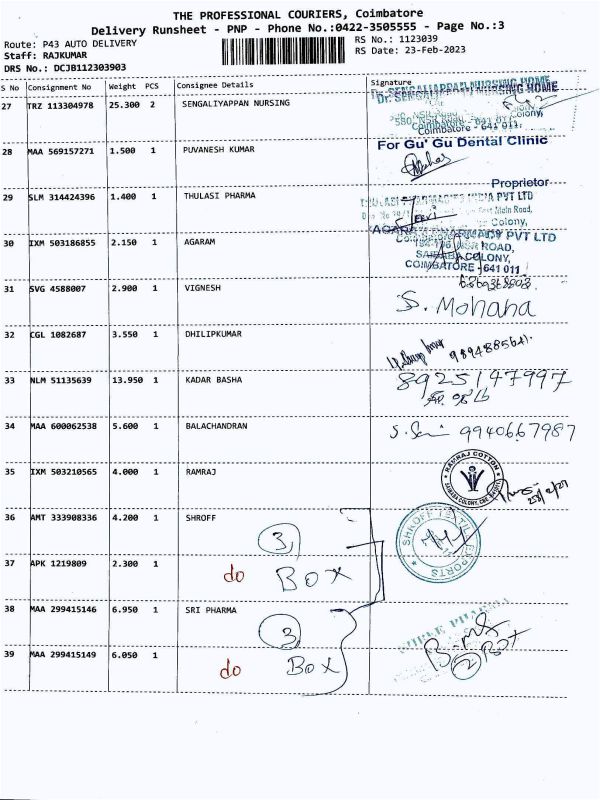 THE PROFESSIONAL COURIERS, Coimbatore
Delivery Runsheet - PNP - Phone No.:0422-3505555 - Page No.:3
Route: P43 AUTO DELIVERY RS No.: 1123039
Staff: RAJKUMAR RS Date: 23-Feb-2023
DRS No.: DCJB112303903
S No Consignment No Weight PCS Consignee Details Signature
Dr. SENGALIYAPPAN NURSING HOME
27 TRZ 113304978 25.300 2 SENGALIYAPPAN NURSING
Colony,
Coimbatore - 641 011.
28 MAA 569157271 1.500 1 PUVANESH KUMAR For Gu' Gu Dental Clinic
Proprietor
29 SLM 314424396 1.400 1 THULASI PHARMA
East Main Road,
Colony,
30 IXM 503186855 2.150 1 AGARAM
PVT LTD
ROAD,
SAIBABA COLONY,
COIMBATORE - 641 011
31 SVG 4588007 2.900 1 VIGNESH
S. Mohana
32 CGL 1082687 3.550 1 DHILIPKUMAR
33 NLM 51135639 13.950 1 KADAR BASHA 8925147997
34 MAA 600062538 5.600 1 BALACHANDRAN 9940667987
35 IXM 503210565 4.000 1 RAMRAJ
RAMRAJ COTTON
36 AMT 333908336 4.200 1 SHROFF
SHROFF TEXTIL EXPORTS
3
37 APK 1219809 2.300 1
do BOX
38 MAA 299415146 6.950 1 SRI PHARMA
3
39 MAA 299415149 6.050 1
do BOX
2 Box